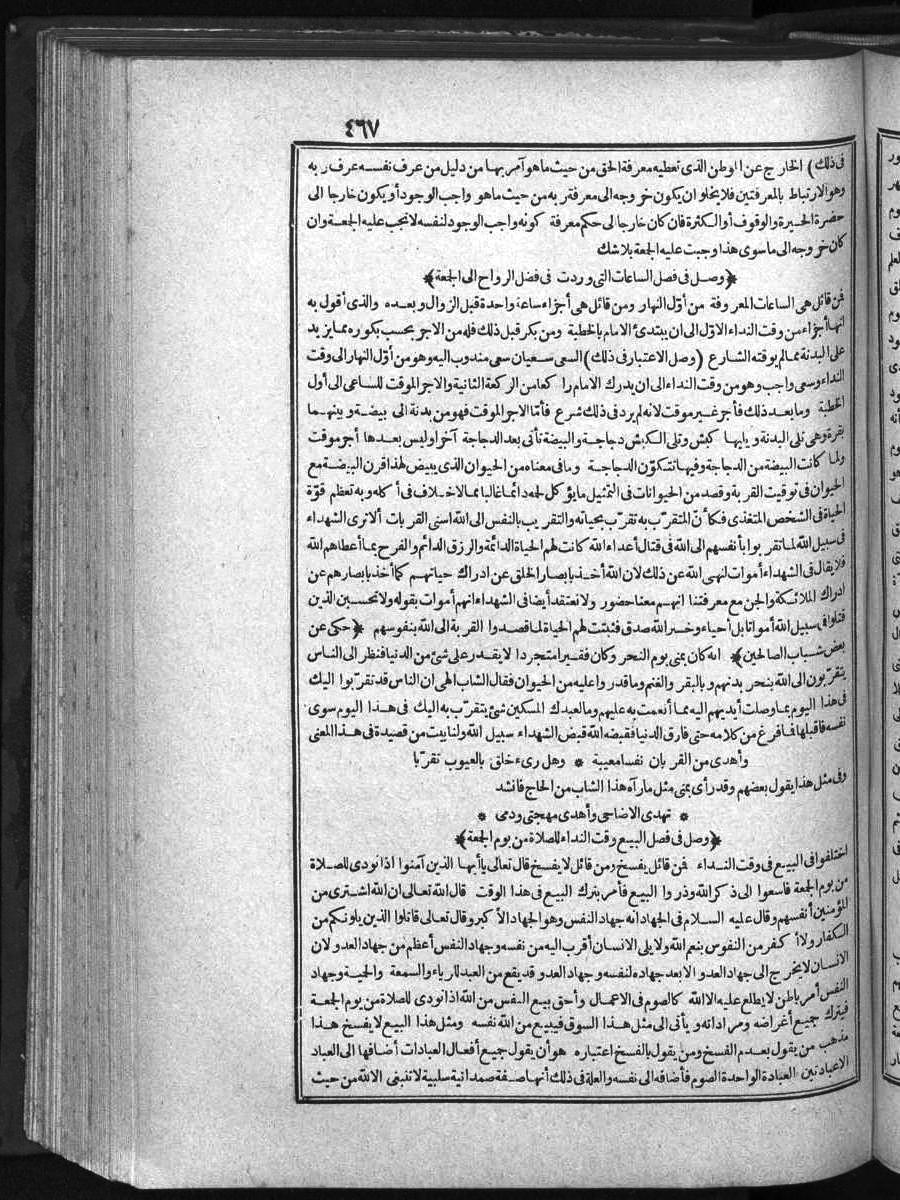 ٤٦٧
فى ذلك) الخارج عن الوطن الذى تعطيه معرفة الحق من حيث ما هو آمر بها من دليل من عرف نفسه عرف ربه
وهو الارتباط بالمعرفتين فلا يخلو ان يكون خروجه الى معرفة ربه من حيث ما هو واجب الوجود أو يكون خارجا الى
حضرة الحيرة والوقوف أو الكثرة فان كان خارجا الى حكم معرفة كونه واجب الوجود لنفسه لا تجب عليه الجمعة وان
كان خروجه الى ما سوى هذا وجبت عليه الجمعة بلا شك
﴿وصل فى فصل الساعات التى وردت فى فضل الرواح الى الجمعة﴾
فمن قائل هى الساعات المعروفة من أوّل النهار ومن قائل هى أجزاء ساعة واحدة قبل الزوال وبعده والذى أقول به
انها أجزاء من وقت النداء الاوّل الى ان يبتدئ الامام بالخطبة ومن بكر قبل ذلك فله من الاجر بحسب بكوره مما يزيد
على البدنة مما لم يوقته الشارع (وصل الاعتبار فى ذلك) السعى سعيان سعى مندوب اليه وهو من أوّل النهار الى وقت
النداء وسعى واجب وهو من وقت النداء الى ان يدرك الامام راكعا من الركعة الثانية والاجر الموقت للساعى الى أول
الخطبة وما بعد ذلك فأجر غير موقت لانه لم يرد فى ذلك شرع فأمّا الاجر الموقت فهو من بدنة الى بيضة وبينهما
بقرة وهى تلى البدنة ويليها كبش وتلى الكبش دجاجة والبيضة تأتى بعد الدجاجة آخرا وليس بعدها أجر موقت
ولما كانت البيضة من الدجاجة وفيها تتكوّن الدجاجة وما فى معناه من الحيوان الذى يبيض لهذا قرن البيضة مع
الحيوان فى توقيت القربة وقصد من الحيوانات فى التمثيل ما يؤكل لحمه دائما غالبا مما لا خلاف فى أكله وبه تعظم قوّة
الحياة فى الشخص المتغذى فكأنّ المتقرّب به تقرّب بحياته والتقريب بالنفس الى الله اسنى القربات ألا ترى الشهداء
فى سبيل الله لما تقربوا بأنفسهم الى الله فى قتال أعداء الله كانت لهم الحياة الدائمة والرزق الدائم والفرح بما أعطاهم الله
فلا يقال فى الشهداء أموات لنهى الله عن ذلك لان الله أخذ بابصار الخلق عن ادراك حياتهم كما أخذ بابصارهم عن
ادراك الملائكة والجن مع معرفتنا انهم معنا حضور ولا نعتقد أيضا فى الشهداء انهم أموات بقوله ولا تحسبن الذين
قتلوا فى سبيل الله أمواتا بل أحياء وخبر الله صدق فثبتت لهم الحياة لما قصدوا القربة الى الله بنفوسهم ﴿حكى عن
بعض شباب الصالحين﴾ انه كان بمنى يوم النحر وكان فقيرا متجردا لا يقدر على شئ من الدنيا فنظر الى الناس
يتقرّبون الى الله بنحر بدنهم وبالبقر والغنم وما قدروا عليه من الحيوان فقال الشاب الهى ان الناس قد تقرّبوا اليك
فى هذا اليوم بما وصلت أيديهم اليه مما أنعمت به عليهم وما لعبدك المسكين شئ يتقرّب به اليك فى هذا اليوم سوى
نفسه فاقبلها فما فرغ من كلامه حتى فارق الدنيا فقبضه الله قبض الشهداء سبيل الله ولنا بيت من قصيدة فى هذا المعنى
وأهدى من القربان نفسا معيبة * وهل رىء خلق بالعيوب تقرّبا
وفى مثل هذا يقول بعضهم وقد رأى بمنى مثل ما رآه هذا الشاب من الحاج فانشد
* تهدى الاضاحى وأهدى مهجتى ودمى *
﴿وصل فى فصل البيع وقت النداء للصلاة من يوم الجمعة﴾
اختلفوا فى البيع فى وقت النداء فمن قائل يفسخ ومن قائل لا يفسخ قال تعالى يا أيها الذين آمنوا اذا نودى للصلاة
من يوم الجمعة فاسعوا الى ذكر الله وذروا البيع فأمر بترك البيع فى هذا الوقت قال الله تعالى ان الله اشترى من
المؤمنين أنفسهم وقال عليه السلام فى الجهاد انه جهاد النفس وهو الجهاد الأكبر وقال تعالى قاتلوا الذين يلونكم من
الكفار ولا أكفر من النفوس بنعم الله ولا يلى الانسان أقرب اليه من نفسه وجهاد النفس أعظم من جهاد العدو لان
الانسان لا يخرج الى جهاد العدو الا بعد جهاده لنفسه وجهاد العدو قد يقع من العبد للرياء والسمعة والحمية وجهاد
النفس أمر باطن لا يطلع عليه الا الله كالصوم فى الاعمال وأحق بيع النفس من الله اذا نودى للصلاة من يوم الجمعة
فيترك جميع أغراضه ومراداته ويأتى الى مثل هذا السوق فيبيع من الله نفسه ومثل هذا البيع لا يفسخ هذا
مذهب من يقول بعدم الفسخ ومن يقول بالفسخ اعتباره هو أن يقول جميع أفعال العبادات أضافها الى العباد
الا عبادتين العبادة الواحدة الصوم فأضافه الى نفسه والعلة فى ذلك أنها صفة صمدانية سلبية لا تنبغى الا لله من حيث